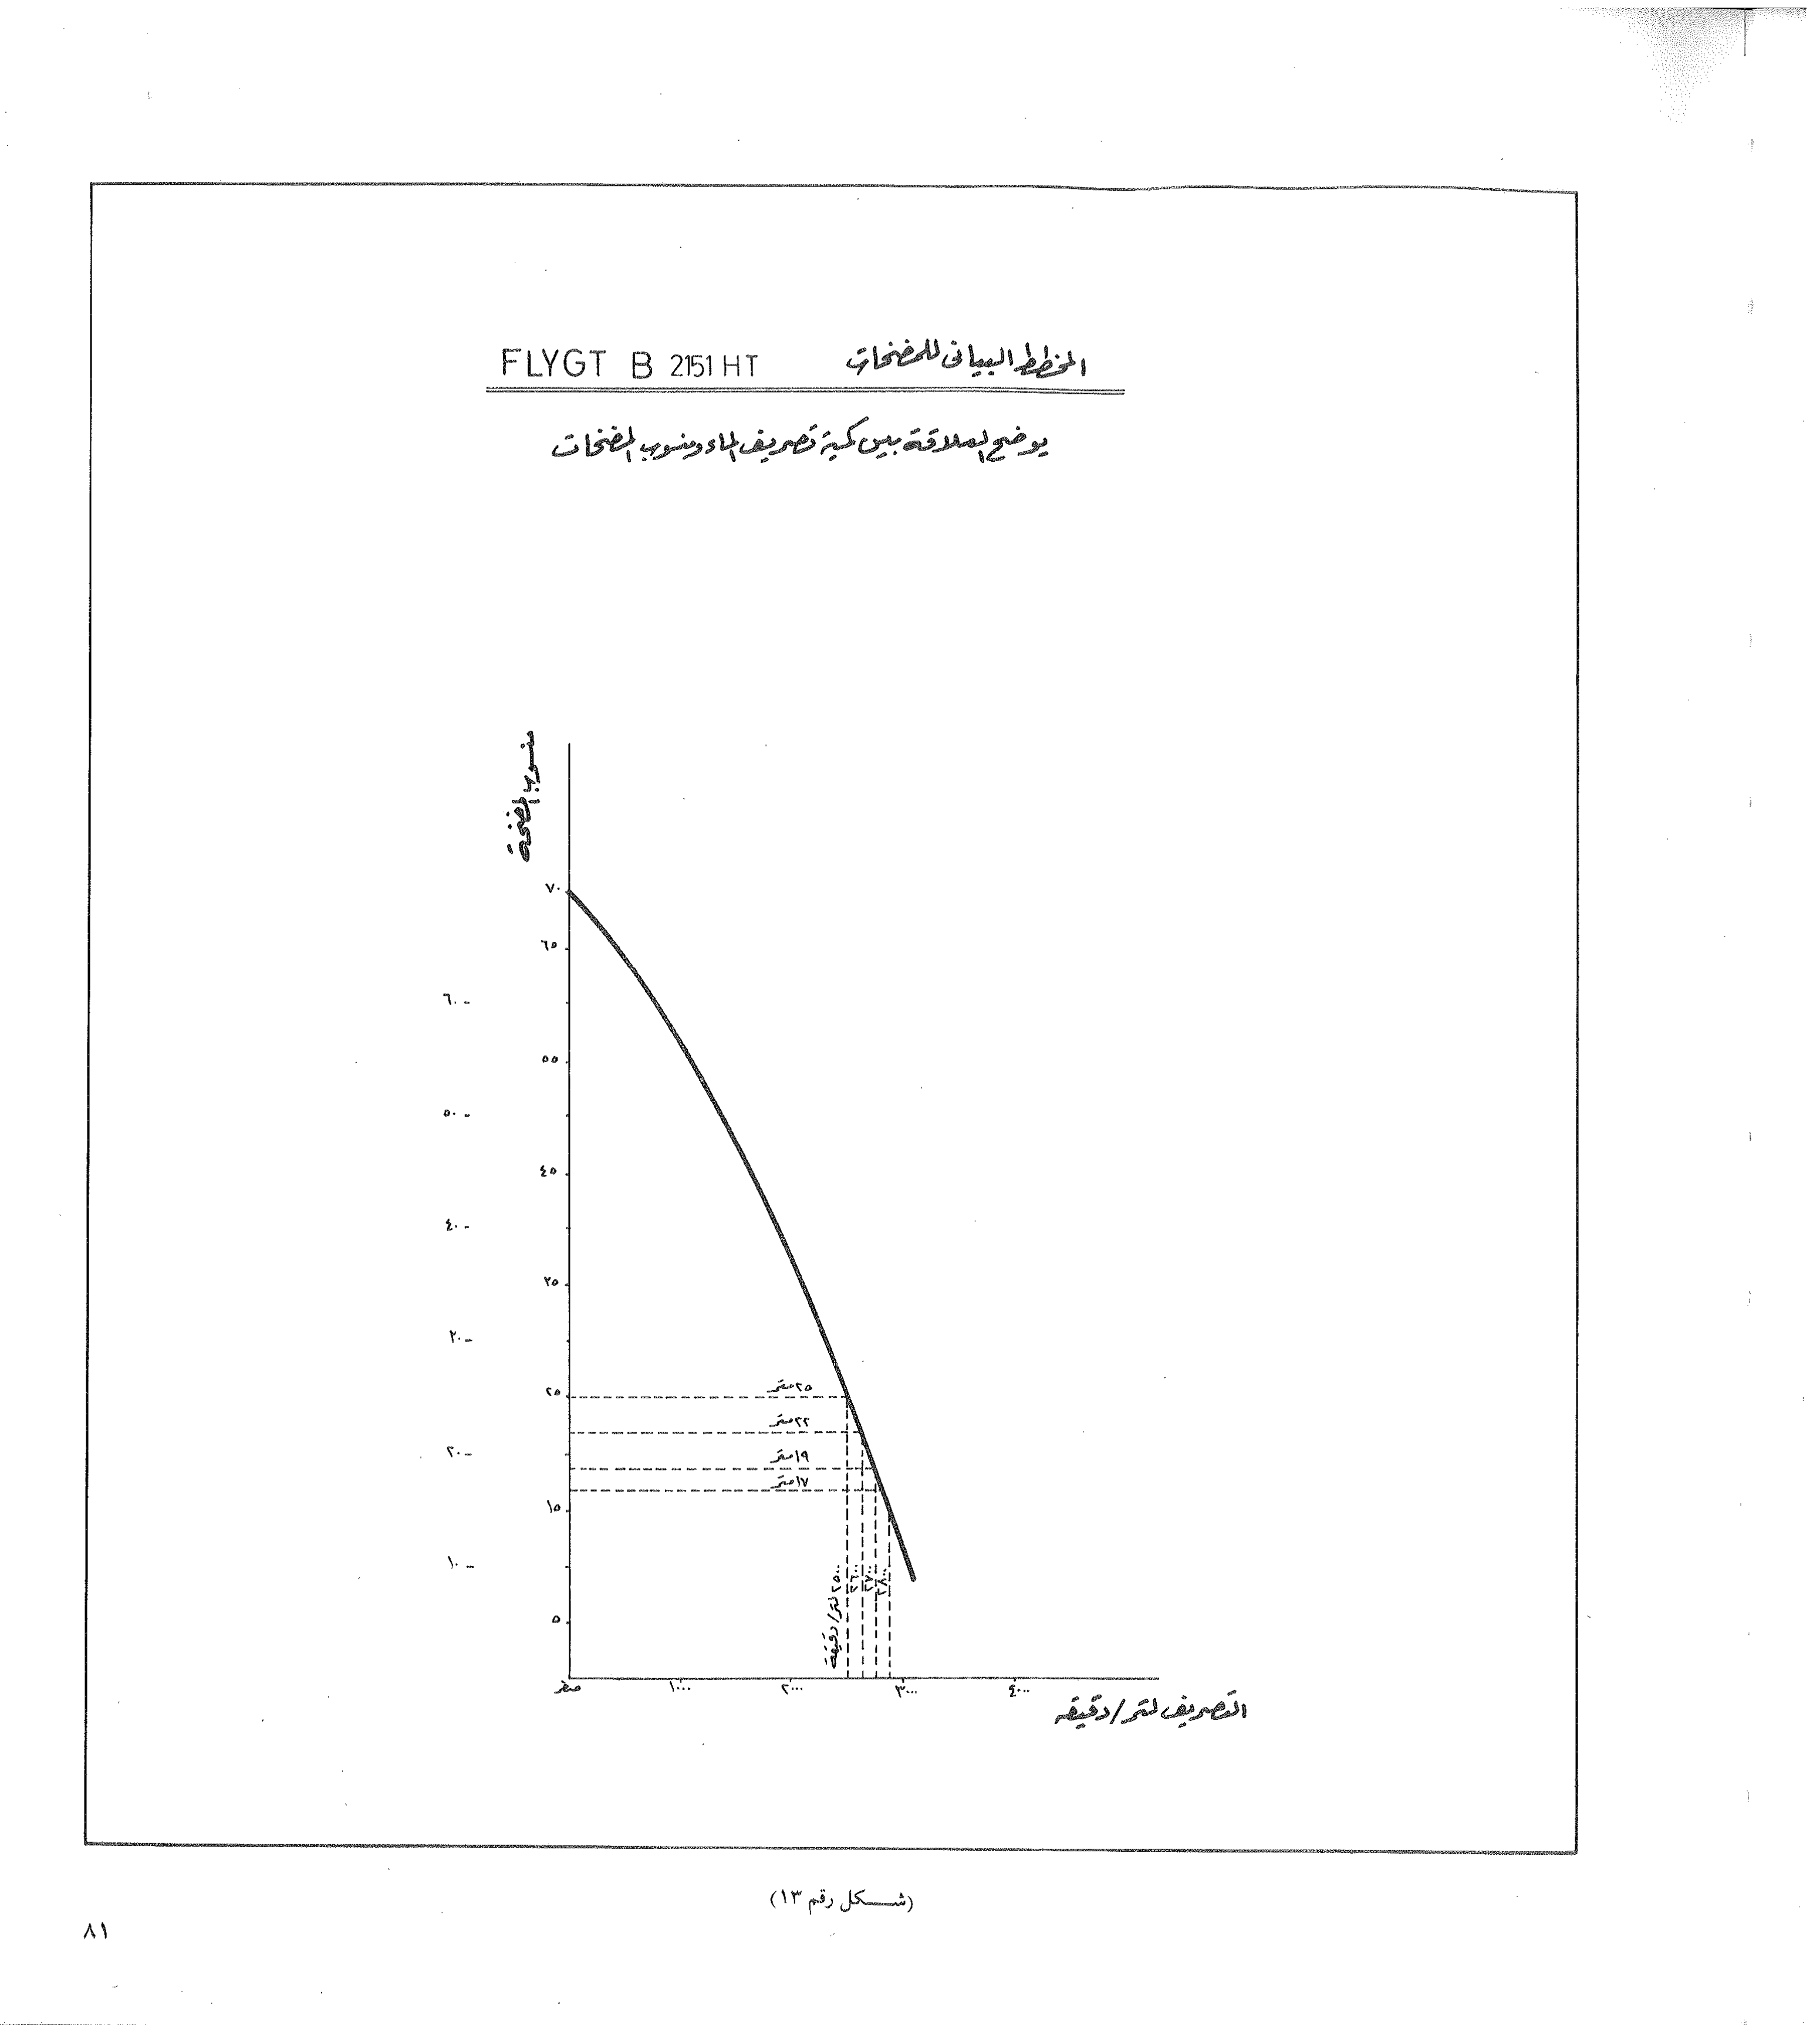 المخطط البياني للمضخات FLYGT B 2151 HT
يوضح العلاقة بين كمية تصريف الماء ومنسوب المضخات
منسوب المضخة
٧٠
٦٥
٦٠
٥٥
٥٠
٤٥
٤٠
٣٥
٣٠
٢٥
٢٠
١٥
١٠
٥
٢٥ متر
٢٢ متر
١٩ متر
١٧ متر
٢٥٠٠ لتر/دقيقة
٢٦٠٠
٢٧٠٠
٢٨٠٠
صفر ١٠٠٠ ٢٠٠٠ ٣٠٠٠ ٤٠٠٠
التصريف لتر/دقيقه
(شكل رقم ١٣)
٨١